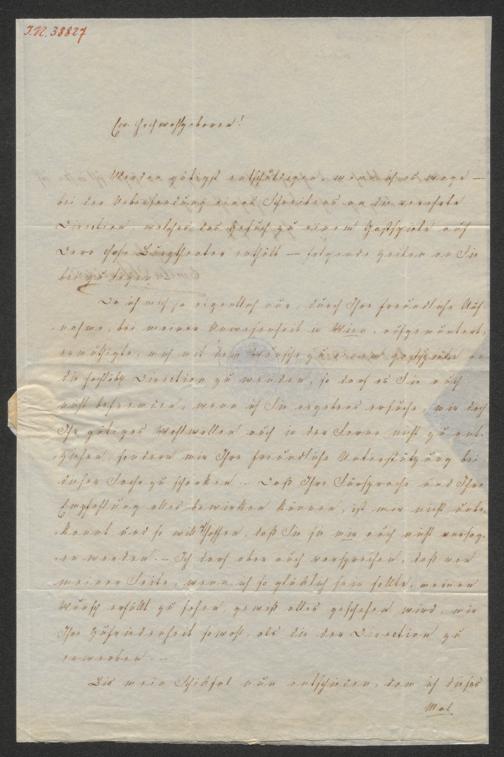 I.N. 38827
Ew. Hochwohlgeboren!
Werden gütigst entschuldigen, wenn ich es wage –
bei der Uebersendung eines Schreibens an die verehrte
Direction, welches das Gesuch zu einem Gastspiele auf
Dero Hofburgtheater enthält – folgende Zeilen an Sie
Da ich mich ja eigentlich nur, durch Ihre freundliche Auf-
nahme, bei meiner Anwesenheit in Wien, aufgemuntert,
mich mit dem Wunsche zu einem Gastspiele an
die Direction zu wenden, so darf es Sie auch
nicht befremden, wenn ich Sie ergebenst ersuche, mir doch
Ihr gütiges Wohlwollen auch in der Ferne nicht zu ent-
ziehen, sondern mir Ihre freundliche Unterstützung bei
dieser Sache zu schenken. – Daß Ihre Fürsprache und Ihre
Empfehlung alles bewirken können, ist mir nicht unbe-
kannt und so will ich hoffen, daß Sie sie mir auch nicht versag-
en werden. – Ich darf aber auch versprechen, daß von
meiner Seite, wenn ich so glücklich sein sollte, meinen
Wunsch erfüllt zu sehen, gewiß alles geschehen wird, mir
Ihre Zufriedenheit sowohl, als die der Direction zu
erwerben. –
Bis mein Schiksal nun entschieden, denn ich dieses
Mal